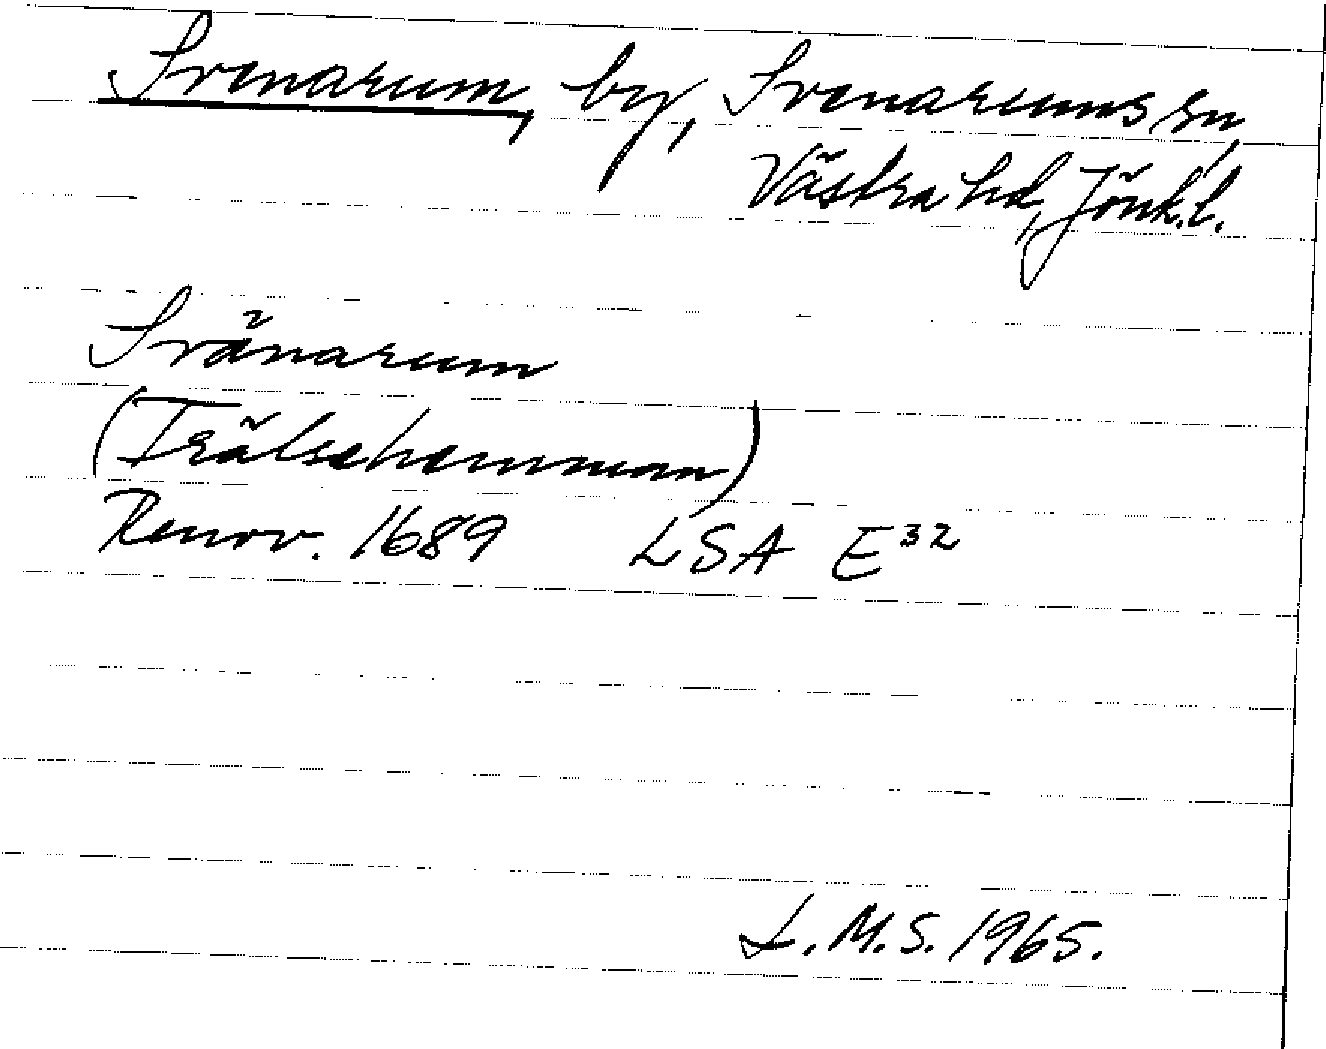 Svenarum, by, Svenarums sn,
Västra hd, Jönk.l.
Svänarum
(Trälsehemman)
Renov. 1689 LSA E32
L.M.S. 1965.